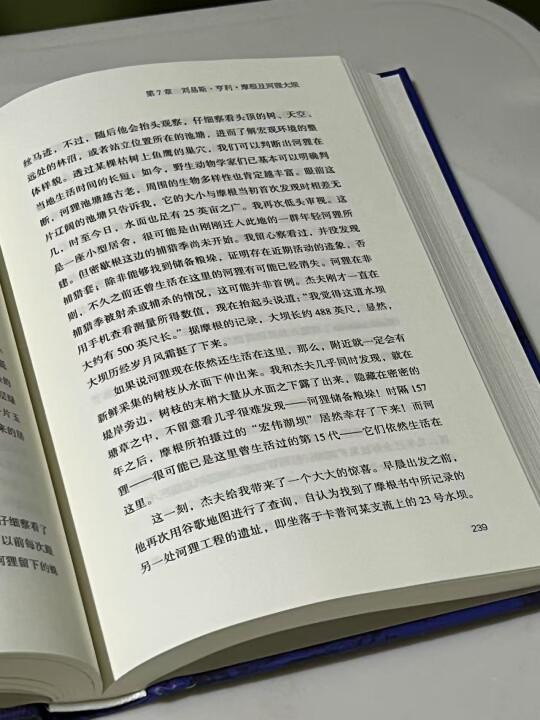 第7章 刘易斯·亨利·摩根及河狸大坝
丝马迹，不过，随后他会抬头观察，仔细察看头顶的树、天空、
远处的林沼，或者站立位置所在的池塘，进而了解宏观环境的整
体样貌。透过某棵枯树上鱼鹰的巢穴，我们可以判断出河狸在
当地生活时间的长短；如今，野生动物学家们已基本可以明确判
断，河狸池塘越古老，周围的生物多样性也肯定越丰富。眼前这
片辽阔的池塘只告诉我，它的大小与摩根当初首次发现时相差无
几，时至今日，水面也足有25英亩之广。我再次低头审视。这
是一座小型居舍，很可能是由刚刚迁入此地的一群年轻河狸所
建。但密歇根这边的捕猎季尚未开始。我留心察看过，并没发现
捕猎套；除非能够找到储备粮垛，证明存在近期活动的迹象，否
则，不久之前还曾生活在这里的河狸有可能已经消失。河狸在非
捕猎季被射杀或捕杀的情况，这可能并非首例。杰夫刚才一直在
用手机查看测量所得数值，现在抬起头说道：“我觉得这道水坝
大约有500英尺长。”据摩根的记录，大坝长约488英尺，显然，
大坝历经岁月风霜挺了下来。
如果说河狸现在依然还生活在这里，那么，附近就一定会有
新鲜采集的树枝从水面下伸出来。我和杰夫几乎同时发现，就在
堤岸旁边，树枝的末梢大量从水面之下露了出来，隐藏在密密的
塘草之中，不留意看几乎很难发现——河狸储备粮垛！时隔157
年之后，摩根所拍摄过的“宏伟湖坝”居然幸存了下来！而河
狸——很可能已是这里曾生活过的第15代——它们依然生活在
这里。
这一刻，杰夫给我带来了一个大大的惊喜。早晨出发之前，
他再次用谷歌地图进行了查询，自认为找到了摩根书中所记录的
另一处河狸工程的遗址，即坐落于卡普河某支流上的23号水坝。
239
仔细察看了
以前每次跑
河狸留下的蛛